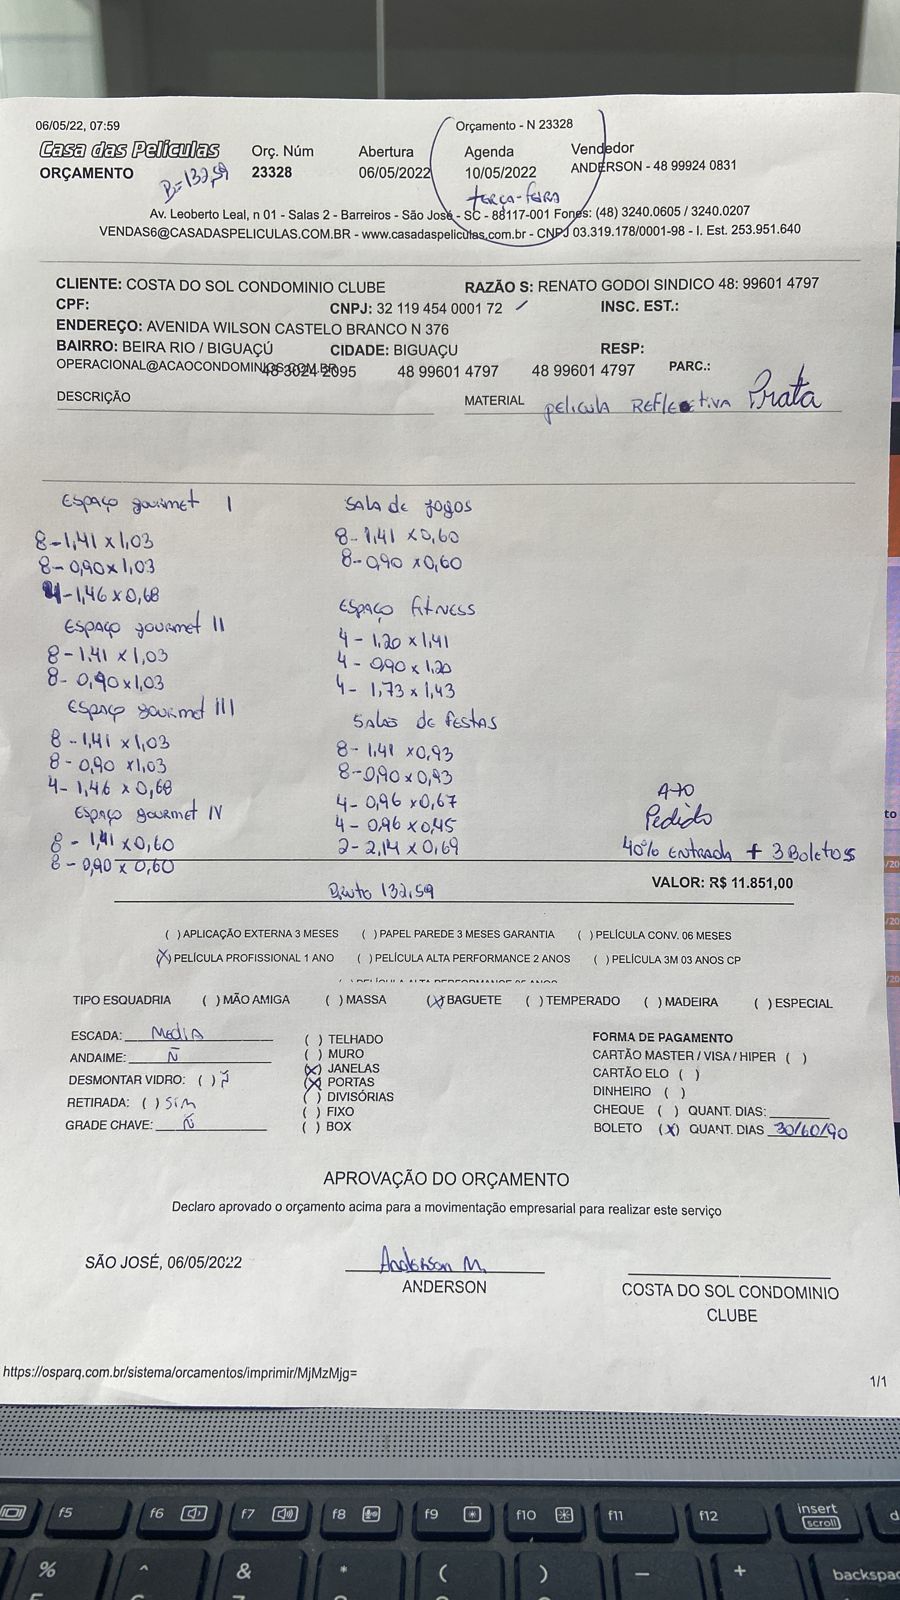 06/05/22, 07:59
Orçamento - N 23328
Casa das Películas
ORÇAMENTO
B=132,59
Orç. Núm
23328
Abertura
06/05/2022
Agenda
10/05/2022
terça-feira
Vendedor
ANDERSON - 48 99924 0831
Av. Leoberto Leal, n 01 - Salas 2 - Barreiros - São José - SC - 88117-001 Fones: (48) 3240.0605 / 3240.0207
VENDAS6@CASADASPELICULAS.COM.BR - www.casadaspeliculas.com.br - CNPJ 03.319.178/0001-98 - I. Est. 253.951.640
CLIENTE: COSTA DO SOL CONDOMINIO CLUBE RAZÃO S: RENATO GODOI SINDICO 48: 99601 4797
CPF: CNPJ: 32 119 454 0001 72 INSC. EST.:
ENDEREÇO: AVENIDA WILSON CASTELO BRANCO N 376
BAIRRO: BEIRA RIO / BIGUAÇÚ CIDADE: BIGUAÇU RESP:
OPERACIONAL@ACAOCONDOMINIOS.COM.BR 48 3024 2095 48 99601 4797 48 99601 4797 PARC.:
DESCRIÇÃO MATERIAL película REFLEtiVA Prata
ESPAÇO gourmet I
8-1,41 x 1,03
8-0,90 x 1,03
4-1,46 x 0,68
ESPAÇO gourmet II
8-1,41 x 1,03
8-0,90 x 1,03
ESPAÇO gourmet III
8-1,41 x 1,03
8-0,90 x 1,03
4-1,46 x 0,68
ESPAÇO gourmet IV
8-1,41 x 0,60
8-0,90 x 0,60
SALA de jogos
8-1,41 x 0,60
8-0,90 x 0,60
ESPAÇO fitNESS
4-1,20 x 1,41
4-0,90 x 1,20
4-1,73 x 1,43
SALÃO de fESTAS
8-1,41 x 0,93
8-0,90 x 0,93
4-0,96 x 0,67
4-0,96 x 0,45
2-2,14 x 0,69
Pedido
40% ENtRADA + 3 BOLETOS
VALOR: R$ 11.851,00
Bruto 132,59
( ) APLICAÇÃO EXTERNA 3 MESES ( ) PAPEL PAREDE 3 MESES GARANTIA ( ) PELÍCULA CONV. 06 MESES
(X) PELÍCULA PROFISSIONAL 1 ANO ( ) PELÍCULA ALTA PERFORMANCE 2 ANOS ( ) PELÍCULA 3M 03 ANOS CP
TIPO ESQUADRIA ( ) MÃO AMIGA ( ) MASSA (X) BAGUETE ( ) TEMPERADO ( ) MADEIRA ( ) ESPECIAL
ESCADA: MEDIA
ANDAIME: Ñ
DESMONTAR VIDRO: ( ) Ñ
RETIRADA: ( ) SIM
GRADE CHAVE: Ñ
( ) TELHADO
( ) MURO
(X) JANELAS
(X) PORTAS
( ) DIVISÓRIAS
( ) FIXO
( ) BOX
FORMA DE PAGAMENTO
CARTÃO MASTER / VISA / HIPER ( )
CARTÃO ELO ( )
DINHEIRO ( )
CHEQUE ( ) QUANT. DIAS:
BOLETO (X) QUANT. DIAS 30/60/90
APROVAÇÃO DO ORÇAMENTO
Declaro aprovado o orçamento acima para a movimentação empresarial para realizar este serviço
SÃO JOSÉ, 06/05/2022
Anderson M.
ANDERSON
COSTA DO SOL CONDOMINIO
CLUBE
https://osparq.com.br/sistema/orcamentos/imprimir/MjMzMjg=
1/1
f5 f6 f7 f8 f9 f10 f11 f12 insert
scroll
% ^ & * ( ) - + backspa